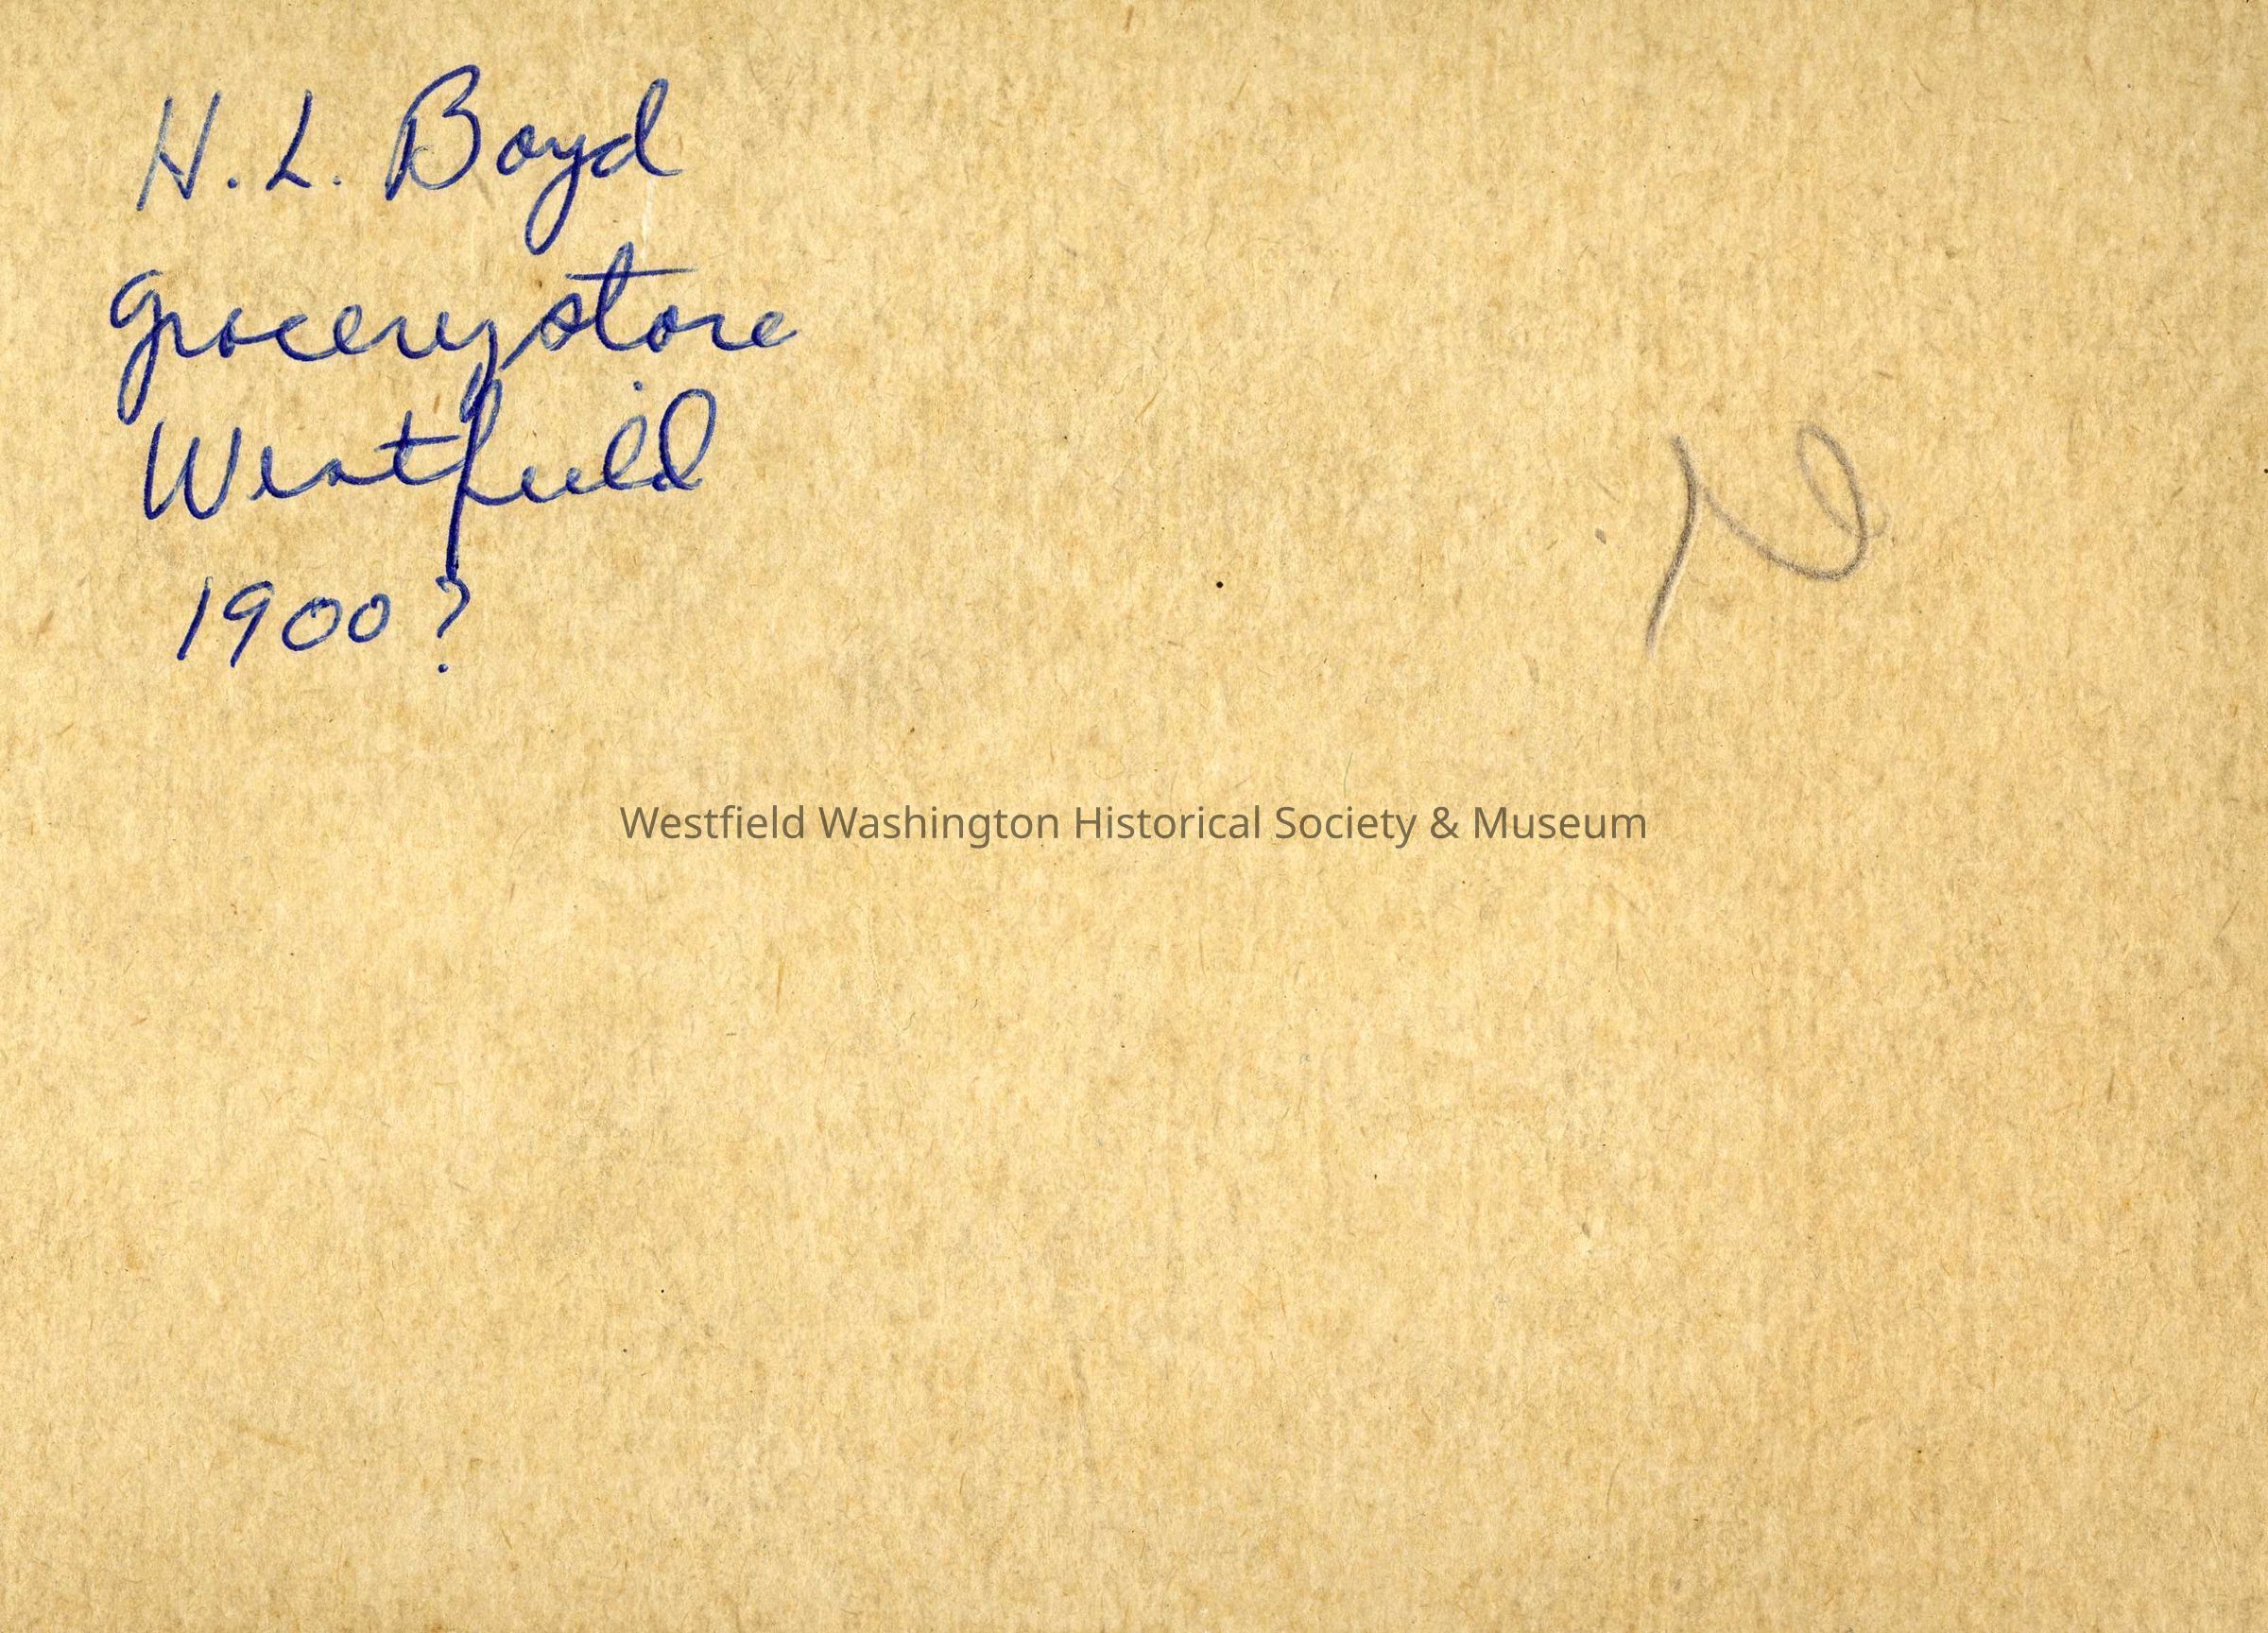 H. L. Boyd
grocery store
Westfield
1900?
Westfield Washington Historical Society & Museum